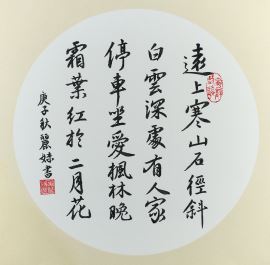 遠上寒山石徑斜
白雲深處有人家
停車坐愛楓林晚
霜葉紅於二月花
庚子秋麗妹書